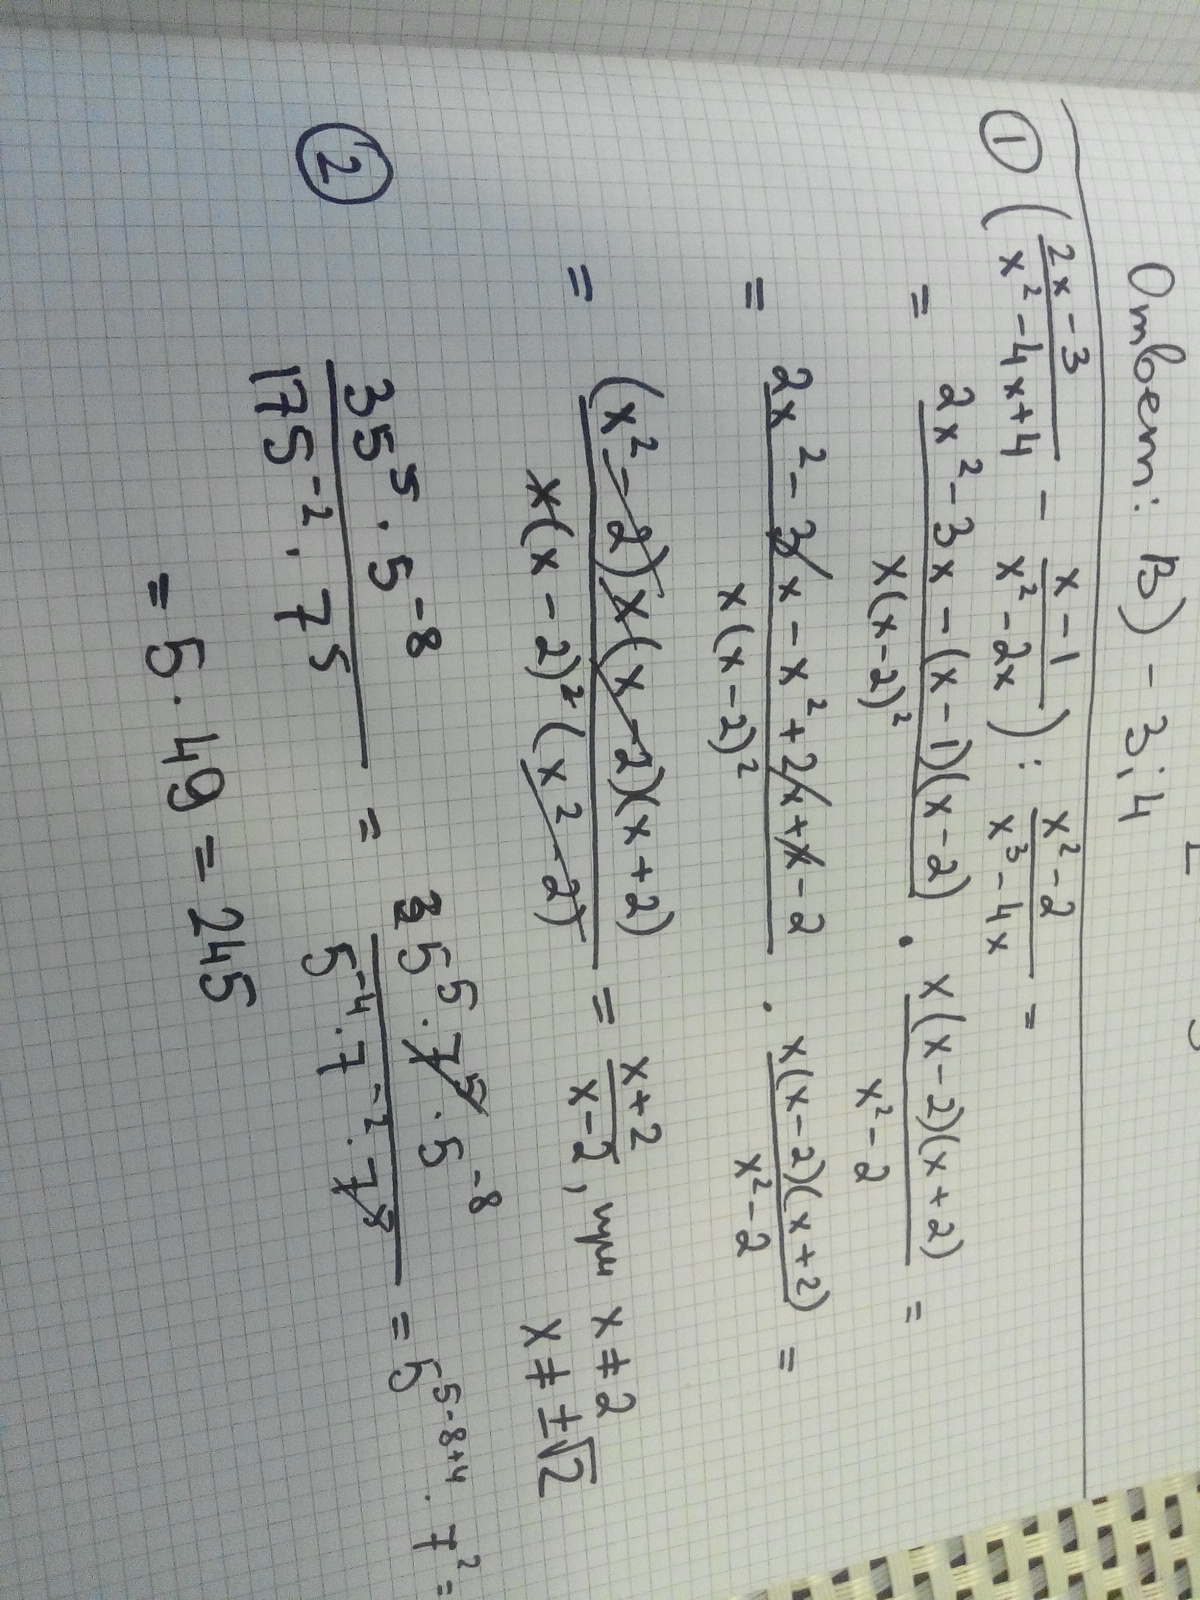 Ответ: В) -3; 4
① ( (2x-3)/(x²-4x+4) - (x-1)/(x²-2x) ) : (x²-2)/(x³-4x) =
= (2x²-3x-(x-1)(x-2))/(x(x-2)²) · (x(x-2)(x+2))/(x²-2) =
= (2x²-3x-x²+2x+x-2)/(x(x-2)²) · (x(x-2)(x+2))/(x²-2) =
= ((x²-2)x(x-2)(x+2))/(x(x-2)²(x²-2)) = (x+2)/(x-2), при x≠2
x≠±√2
② (35⁵·5⁻⁸)/(175⁻²·7⁵) = (5⁵·7⁵·5⁻⁸)/(5⁻⁴·7⁻²·7⁵) = 5⁵⁻⁸⁺⁴·7² =
= 5·49 = 245